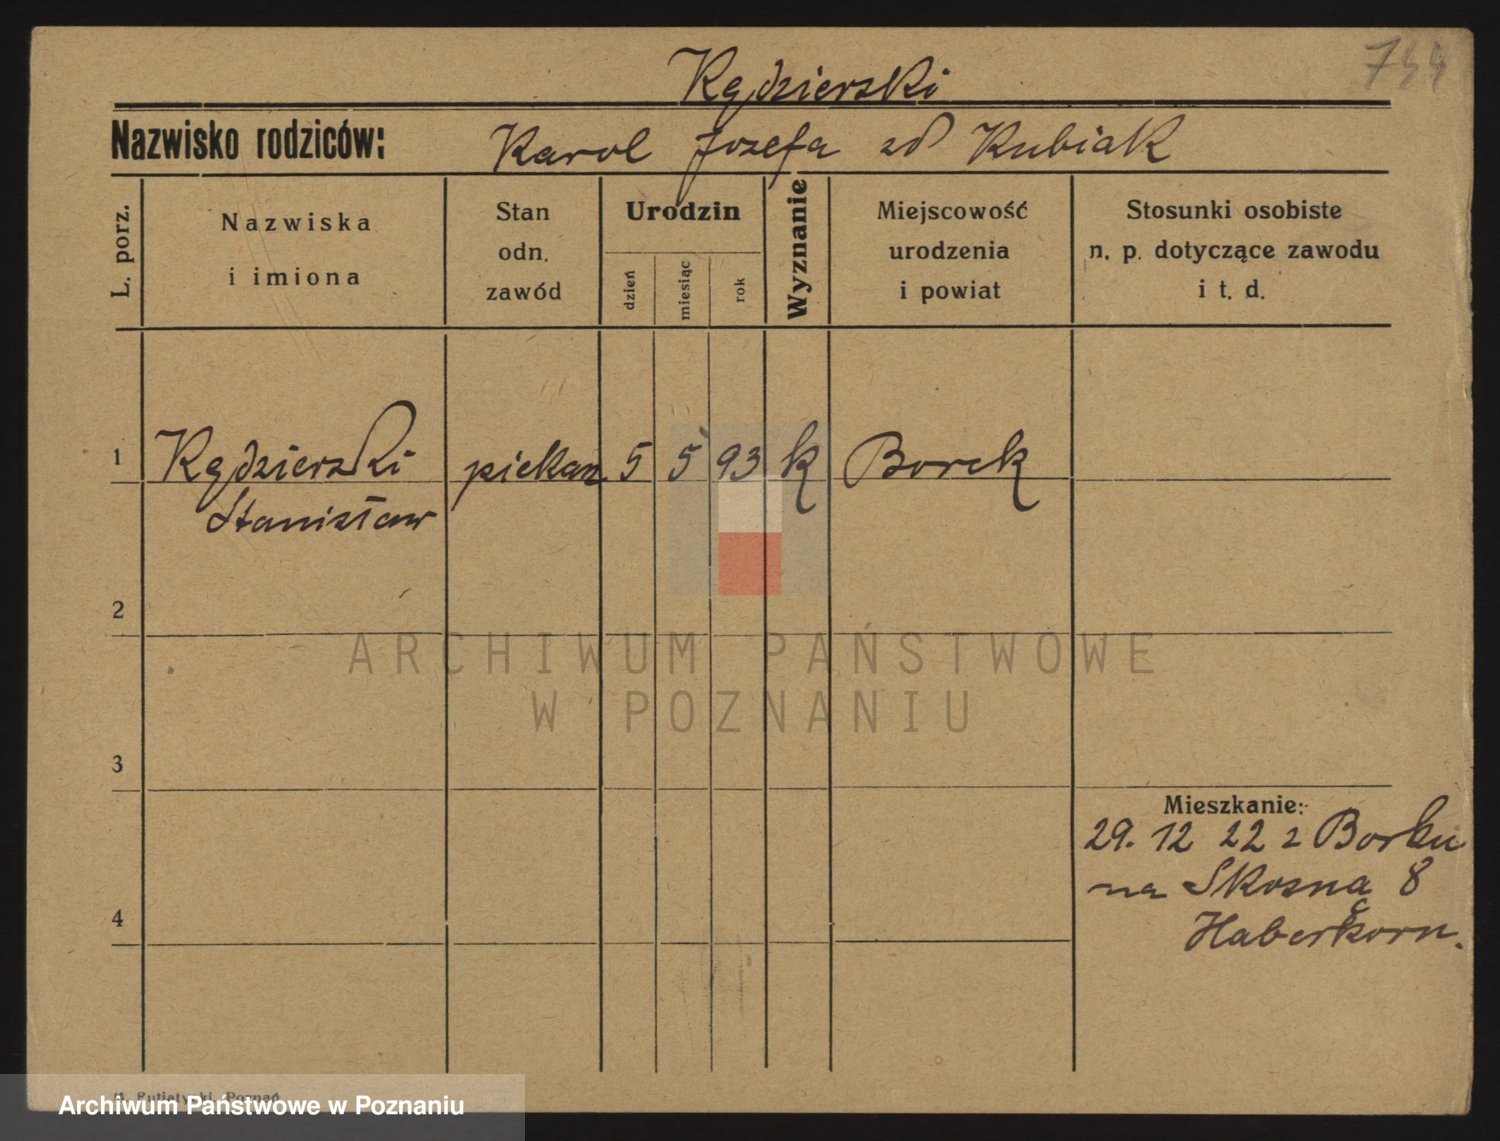 744
Kędzierski
Nazwisko rodziców: Karol Jozefa zd Kubiak
L. porz.
Nazwiska
i imiona
Stan
odn.
zawód
Urodzin
dzień
miesiąc
rok
Wyznanie
Miejscowość
urodzenia
i powiat
Stosunki osobiste
n. p. dotyczące zawodu
i t. d.
1 Kędzierski piekarz 5 5 93 k Borek
Stanisław
2
3
4
Mieszkanie:
29. 12 22 z Borku
na Skosną 8
Haberkorn.
ARCHIWUM PAŃSTWOWE
W POZNANIU
Poznań
Archiwum Państwowe w Poznaniu